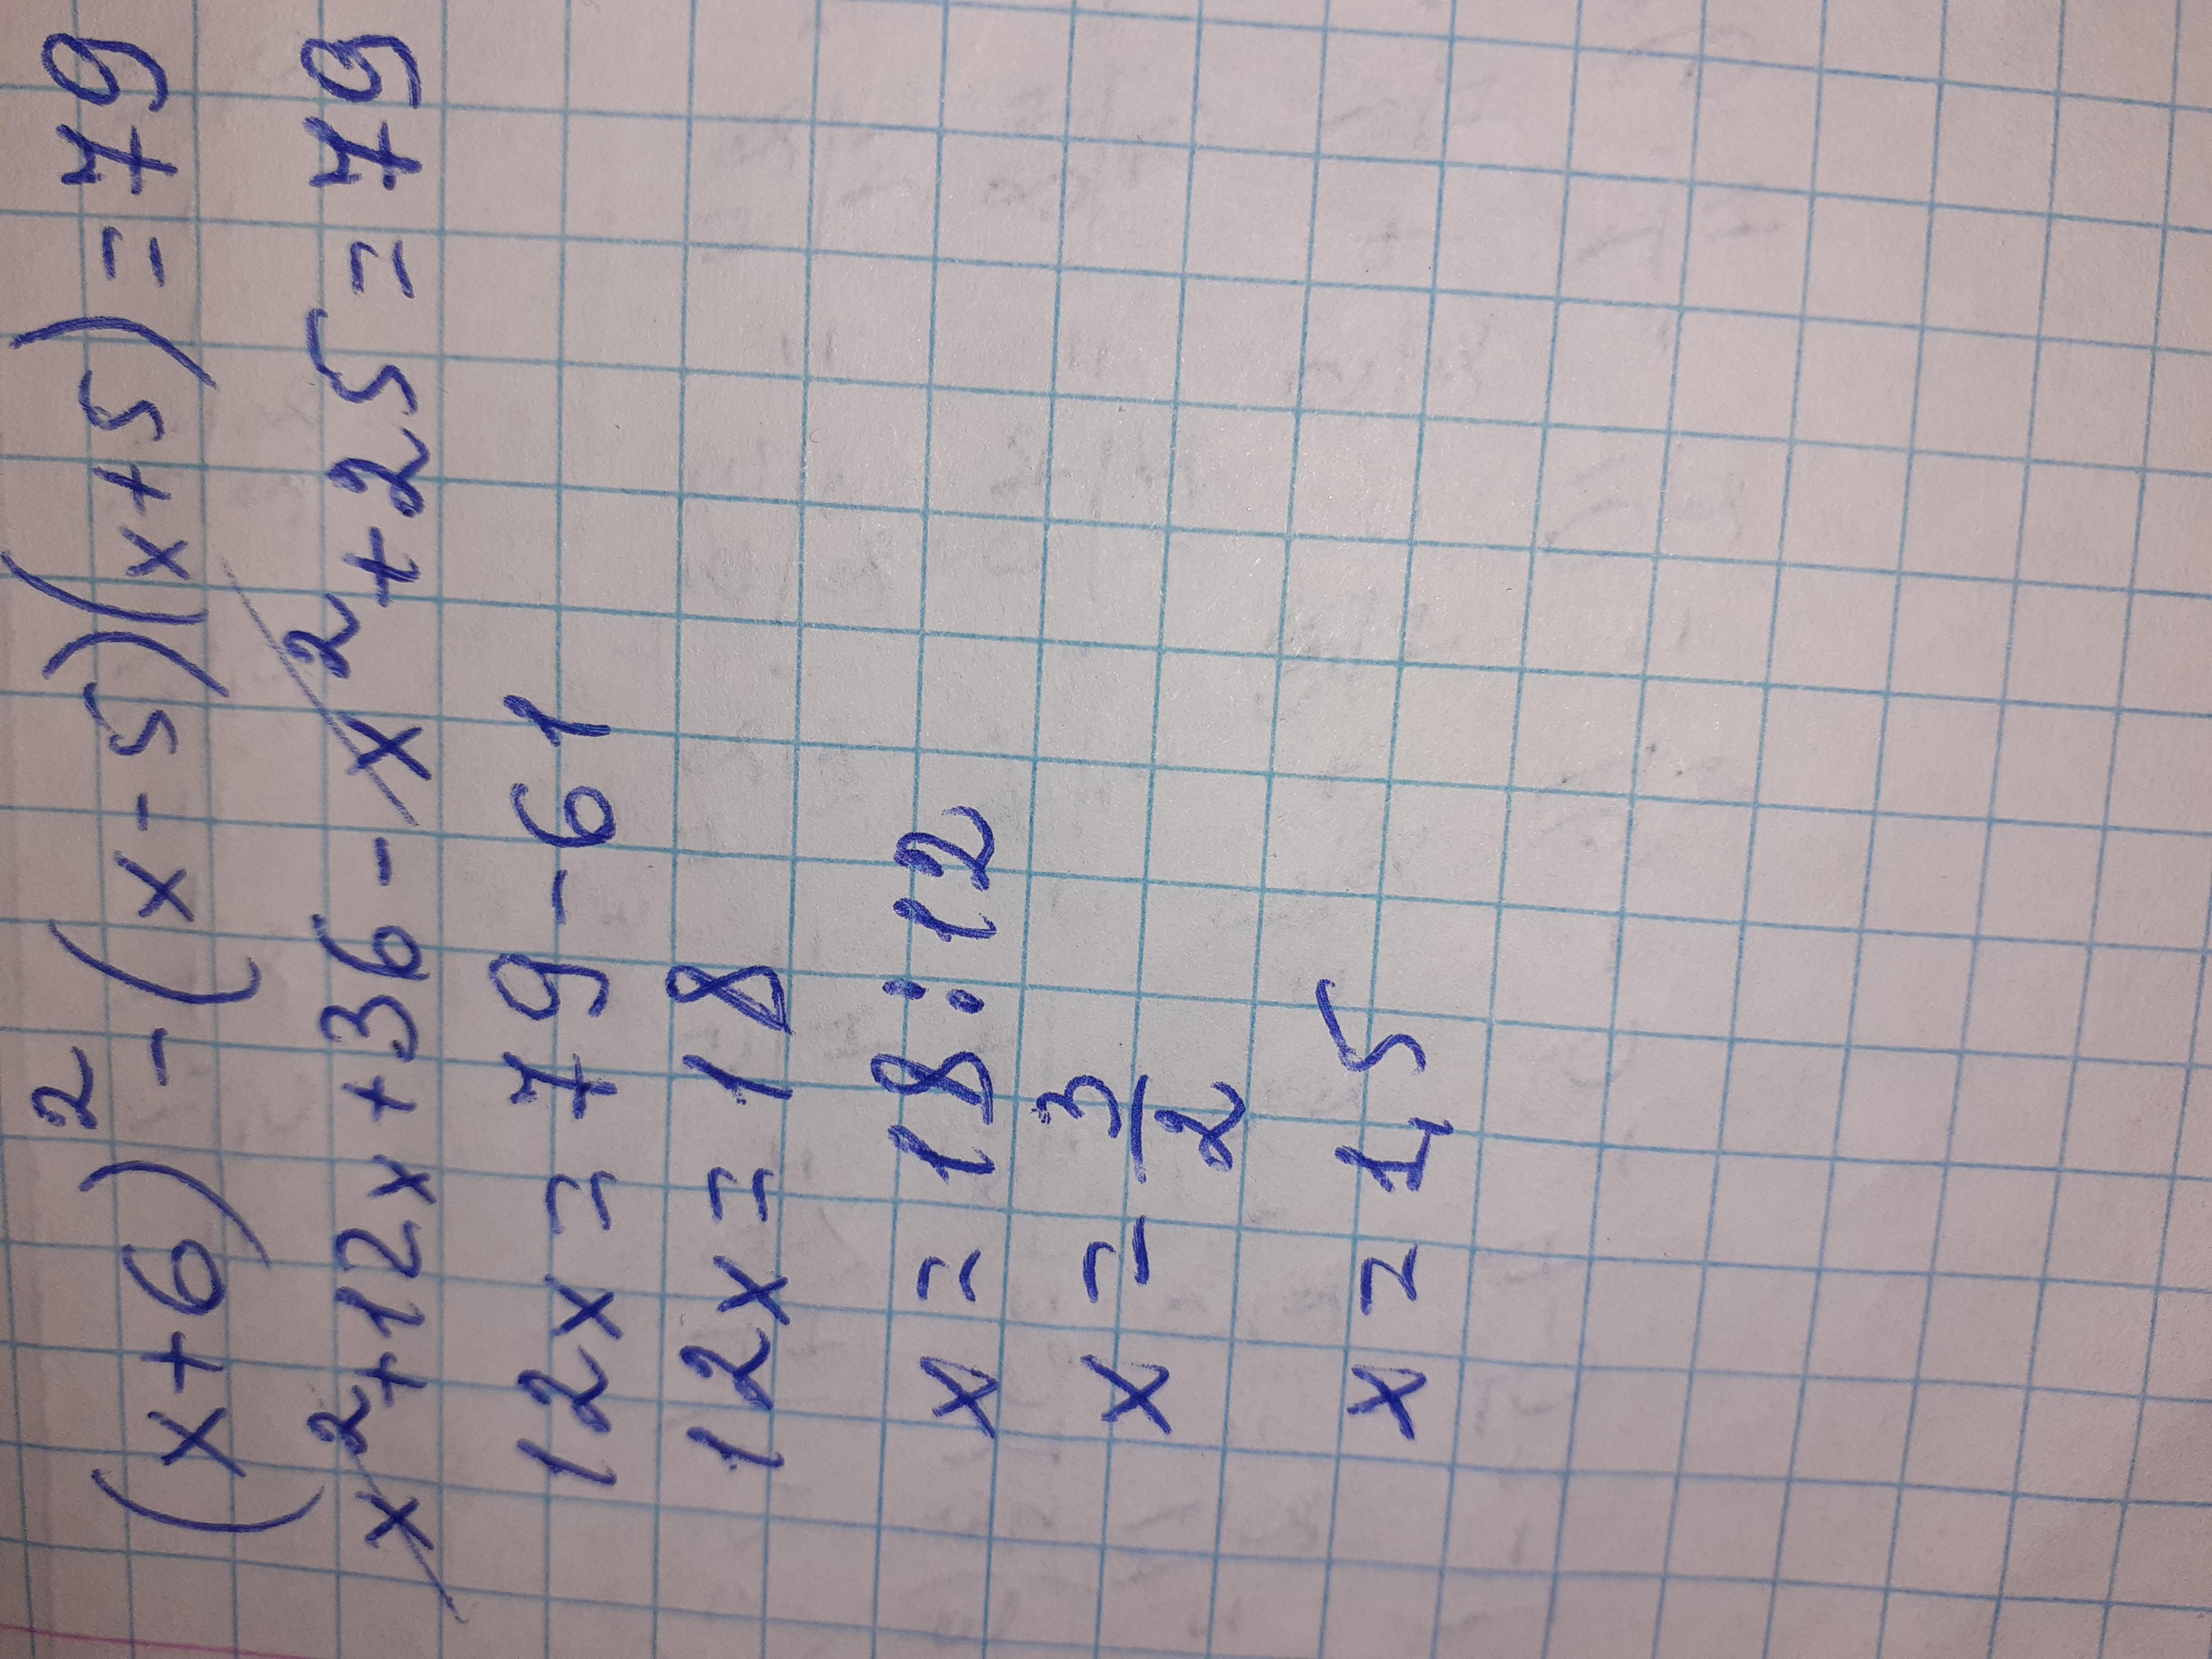 (x+6)² - (x-5)(x+5) = 79
x² + 12x + 36 - x² + 25 = 79
12x = 79 - 61
12x = 18
x = 18 : 12
x = 3/2
x = 1,5